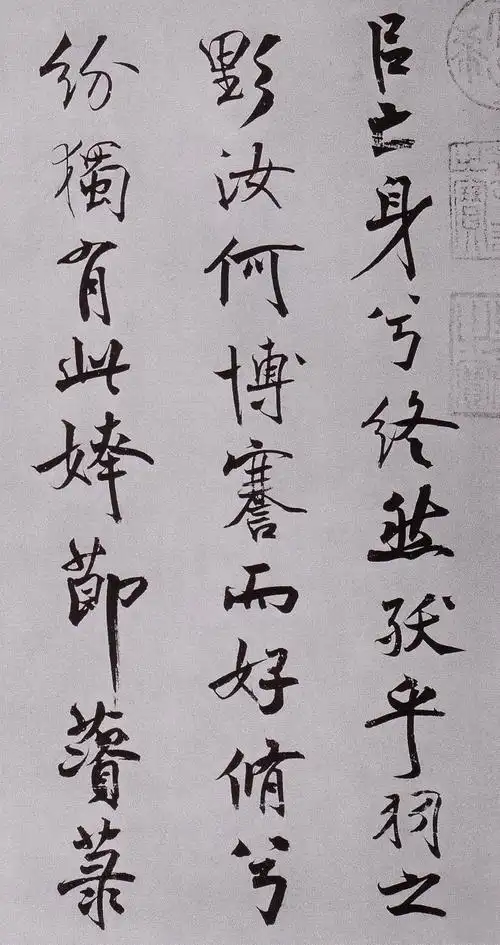 㠯亡身兮終然殀乎羽之
野汝何博謇而好脩兮
紛獨有此姱莭薋菉